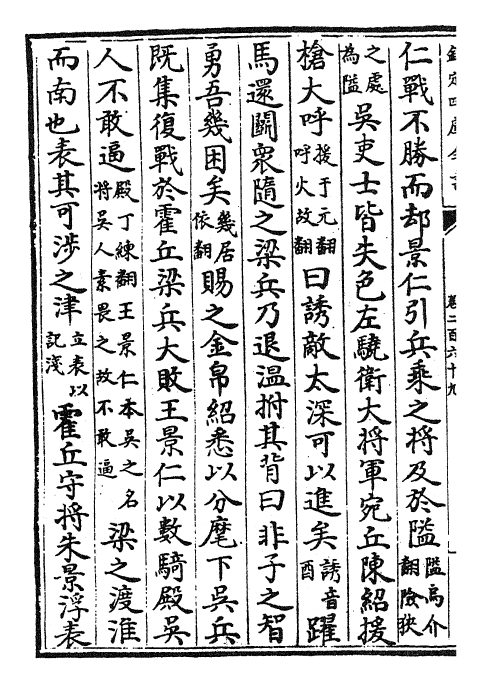 欽定四庫全書
卷二百六十九
仁戰不勝而却景仁引兵乘之将及於隘隘烏介翻險狹
之處為隘吳吏士皆失色左驍衛大将軍宛丘陳紹援
槍大呼援于元翻呼火故翻曰誘敵太深可以進矣誘音酉躍
馬還鬭衆隨之梁兵乃退温拊其背曰非子之智
勇吾幾困矣幾居依翻賜之金帛紹悉以分麾下吳兵
既集復戰於霍丘梁兵大敗王景仁以數騎殿吳
人不敢逼殿丁練翻王景仁本吳之名将吳人素畏之故不敢逼梁之渡淮
而南也表其可涉之津立表以記淺霍丘守将朱景浮表